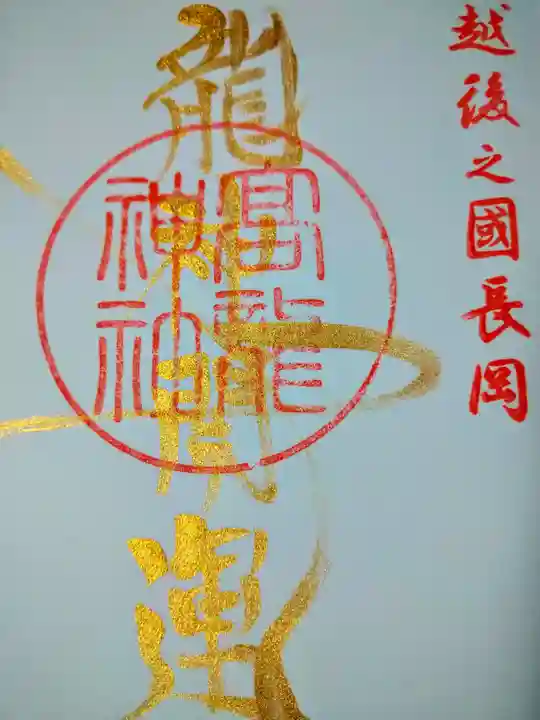 越後之國長岡
龍神開運
高龍
神社